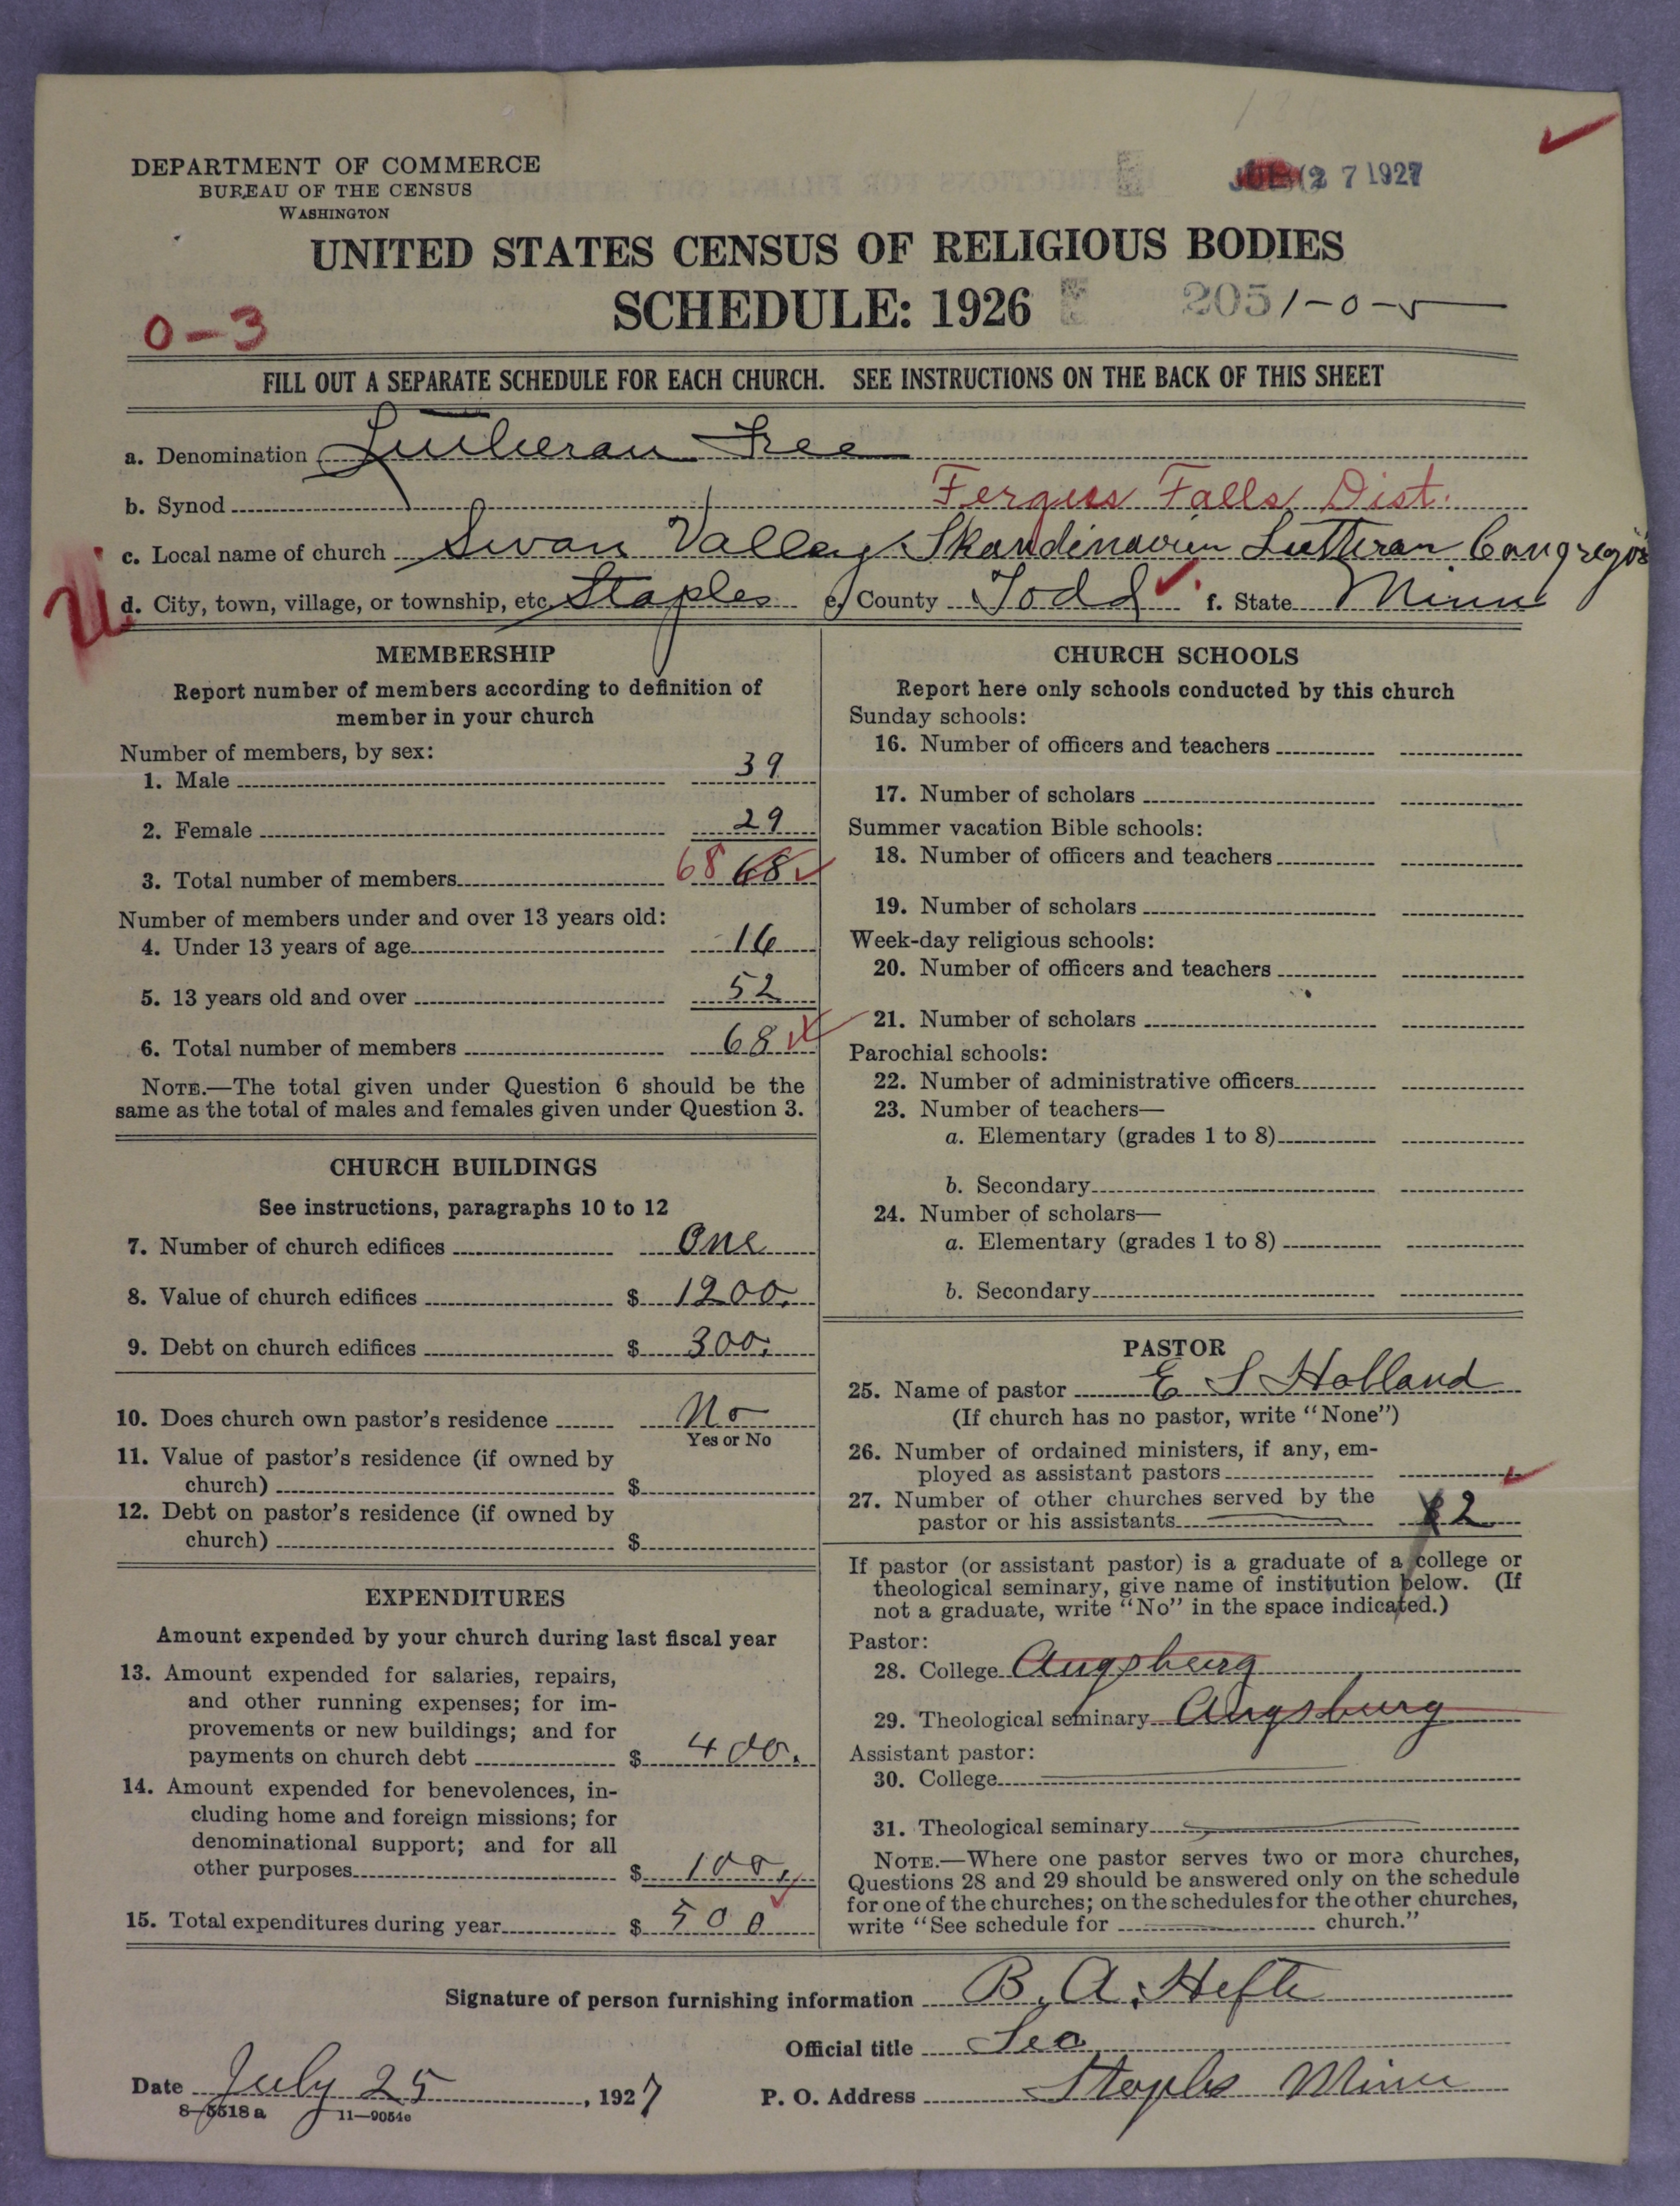 DEPARTMENT OF COMMERCE
BUREAU OF THE CENSUS
WASHINGTON
27 1927
UNITED STATES CENSUS OF RELIGIOUS BODIES
SCHEDULE: 1926
2051-0-5
0-3
FILL OUT A SEPARATE SCHEDULE FOR EACH CHURCH. SEE INSTRUCTIONS ON THE BACK OF THIS SHEET
a. Denomination Lutheran Free
b. Synod Fergus Falls Dist.
c. Local name of church Swan Valley Skandinavien Lutheran
d. City, town, village, or township, etc. Staples e. County Todd f. State Minn
MEMBERSHIP
Report number of members according to definition of
member in your church
Number of members, by sex:
1. Male 39
2. Female 29
3. Total number of members 68 68
Number of members under and over 13 years old:
4. Under 13 years of age 16
5. 13 years old and over 52
6. Total number of members 68
NOTE.—The total given under Question 6 should be the
same as the total of males and females given under Question 3.
CHURCH BUILDINGS
See instructions, paragraphs 10 to 12
7. Number of church edifices One
8. Value of church edifices $ 1200.
9. Debt on church edifices $ 300.
10. Does church own pastor's residence No
Yes or No
11. Value of pastor's residence (if owned by
church) $
12. Debt on pastor's residence (if owned by
church) $
EXPENDITURES
Amount expended by your church during last fiscal year
13. Amount expended for salaries, repairs,
and other running expenses; for im-
provements or new buildings; and for
payments on church debt $ 400.
14. Amount expended for benevolences, in-
cluding home and foreign missions; for
denominational support; and for all
other purposes $ 100.
15. Total expenditures during year $ 500
CHURCH SCHOOLS
Report here only schools conducted by this church
Sunday schools:
16. Number of officers and teachers
17. Number of scholars
Summer vacation Bible schools:
18. Number of officers and teachers
19. Number of scholars
Week-day religious schools:
20. Number of officers and teachers
21. Number of scholars
Parochial schools:
22. Number of administrative officers
23. Number of teachers—
a. Elementary (grades 1 to 8)
b. Secondary
24. Number of scholars—
a. Elementary (grades 1 to 8)
b. Secondary
PASTOR
25. Name of pastor E S Holland
(If church has no pastor, write "None")
26. Number of ordained ministers, if any, em-
ployed as assistant pastors
27. Number of other churches served by the
pastor or his assistants 2
If pastor (or assistant pastor) is a graduate of a college or
theological seminary, give name of institution below. (If
not a graduate, write "No" in the space indicated.)
Pastor:
28. College Augsburg
29. Theological seminary Augsburg
Assistant pastor:
30. College
31. Theological seminary
NOTE.—Where one pastor serves two or more churches,
Questions 28 and 29 should be answered only on the schedule
for one of the churches; on the schedules for the other churches,
write "See schedule for church."
Signature of person furnishing information B. A. Hefte
Official title Sec
Date July 25, 1927 P. O. Address Staples Minn
8-5518 a 11-9054c